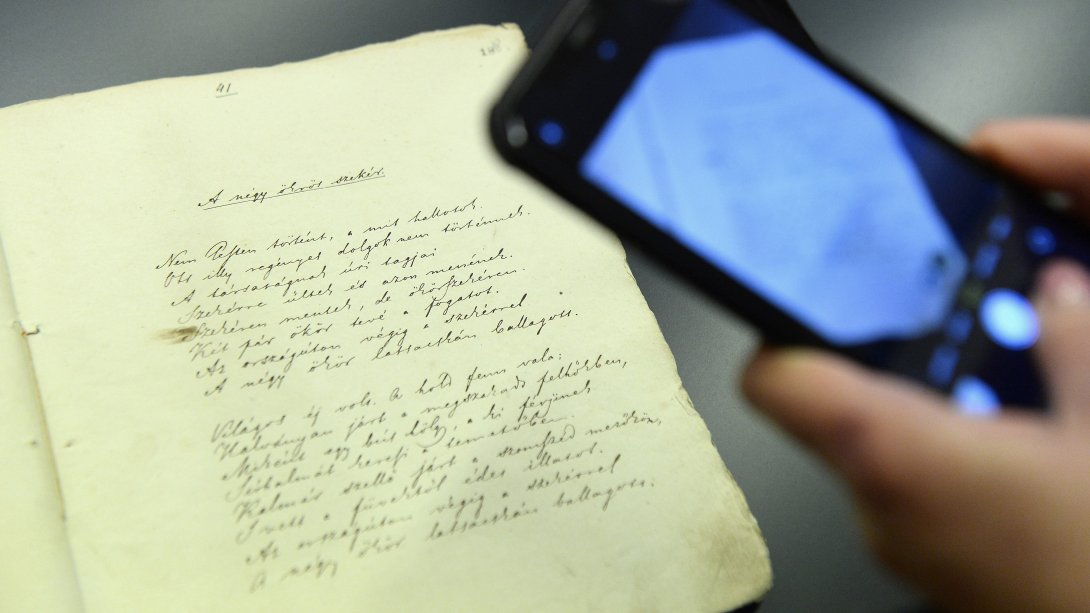 41
148
A négy ökrös szekér.
Nem Pesten történt, a mit hallotok.
Ott illy regényes dolgok nem történnek.
A társaságnak úri tagjai
Szekérre ültek és azon menének.
Szekéren mentek, de ökörszekéren.
Két pár ökör tevé a fogatot.
Az országúton végig a szekérrel
A négy ökör lassacskán ballagott.
Világos éj volt. A hold fenn vala;
Halványan járt a megszakadt felhőkben,
Miként egy bús hölgy, a ki férjének
Sírhalmát keresi a temetőben.
Kalmár szellő járt a szomszéd mezőkön,
S vett a füvektől édes illatot.
Az országúton végig a szekérrel
A négy ökör lassacskán ballagott.